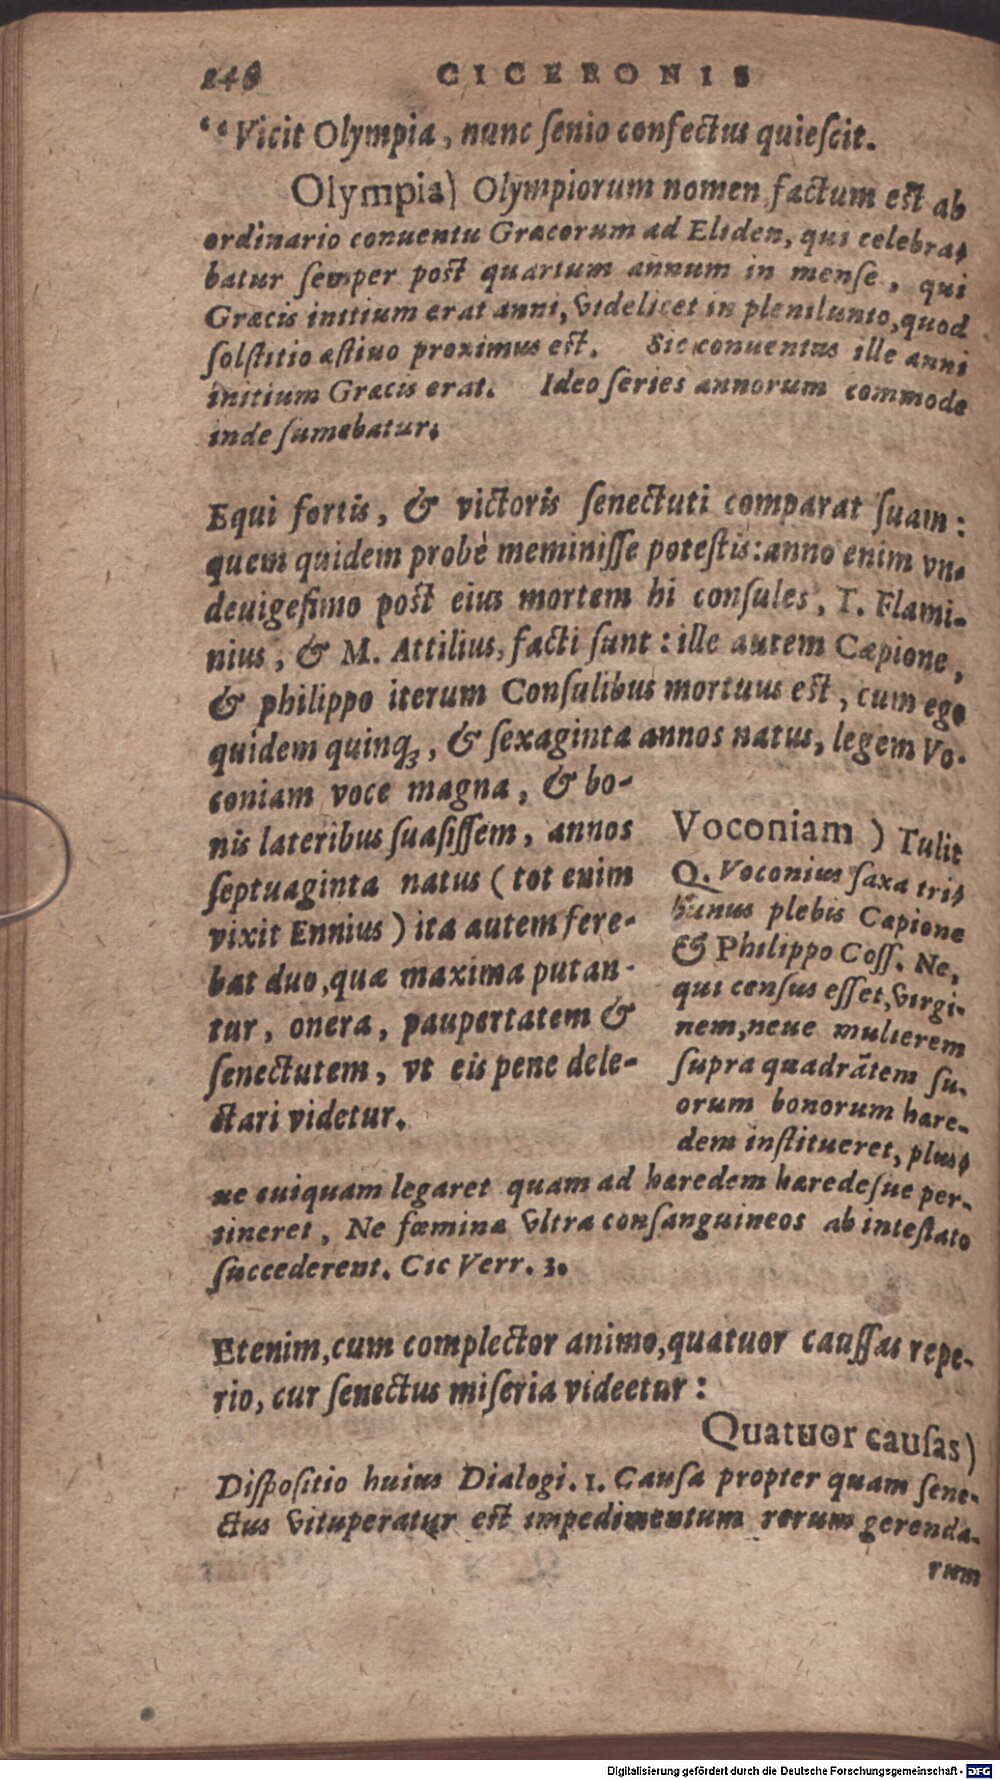 248 CICERONIS
“Vicit Olympia, nunc ſenio confectus quieſcit.
Olympia) Olympiorum nomen factum eſt ab
ordinario conuentu Græcorum ad Eliden, qui celebra-
batur ſemper poſt quartum annum in menſe, qui
Græcis initium erat anni, videlicet in plenilunio, quod
ſolſtitio æſtiuo proximus eſt. Sic conuentus ille anni
initium Græcis erat. Ideo ſeries annorum commode
inde ſumebatur.
Equi fortis, & victoris ſenectuti comparat ſuam:
quem quidem probè meminiſſe poteſtis: anno enim vn-
deuigeſimo poſt eius mortem hi conſules, T. Flami-
nius, & M. Attilius, facti ſunt: ille autem Cæpione,
& philippo iterum Conſulibus mortuus eſt, cum ego
quidem quinq;, & ſexaginta annos natus, legem Vo-
coniam voce magna, & bo-
nis lateribus ſuaſiſſem, annos
ſeptuaginta natus (tot enim
vixit Ennius) ita autem fere-
bat duo, quæ maxima putan-
tur, onera, paupertatem &
ſenectutem, vt eis pene dele-
ctari videtur.
Voconiam) Tulit
Q. Voconius ſaxa tri-
bunus plebis Capione
& Philippo Coſſ. Ne,
qui cenſus eſſet, virgi-
nem, neue mulierem
ſupra quadrãtem ſu-
orum bonorum hære-
dem inſtitueret, pluſ-
ue cuiquam legaret quam ad hæredem hæredeſue per-
tineret, Ne fœmina vltra conſanguineos ab inteſtato
ſuccederent. Cic Verr. 3.
Etenim, cum complector animo, quatuor cauſſas repe-
rio, cur ſenectus miſeria videetur:
Quatuor cauſas)
Diſpoſitio huius Dialogi. 1. Cauſa propter quam ſene-
ctus vituperatur eſt impedimentum rerum gerenda-
rum
Digitalisierung gefördert durch die Deutsche Forschungsgemeinschaft - DFG